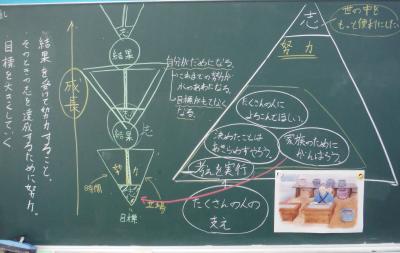 志
世の中を
もっと便利にしたい
努力
たくさんの人に
よろこんでほしい。
決めたことは
あきらめずやろう。
家族のために
がんばろう。
考えを実行
たくさんの人の
支え
自分がだめになる。
これまでの努力が
水のあわとなる。
目標がもてなく
なる。
結果
志
結果
努力
時間
立場
目標
成長
結果を受けて努力すること。
そのときの志を達成するために努力。
目標を大きくしていく